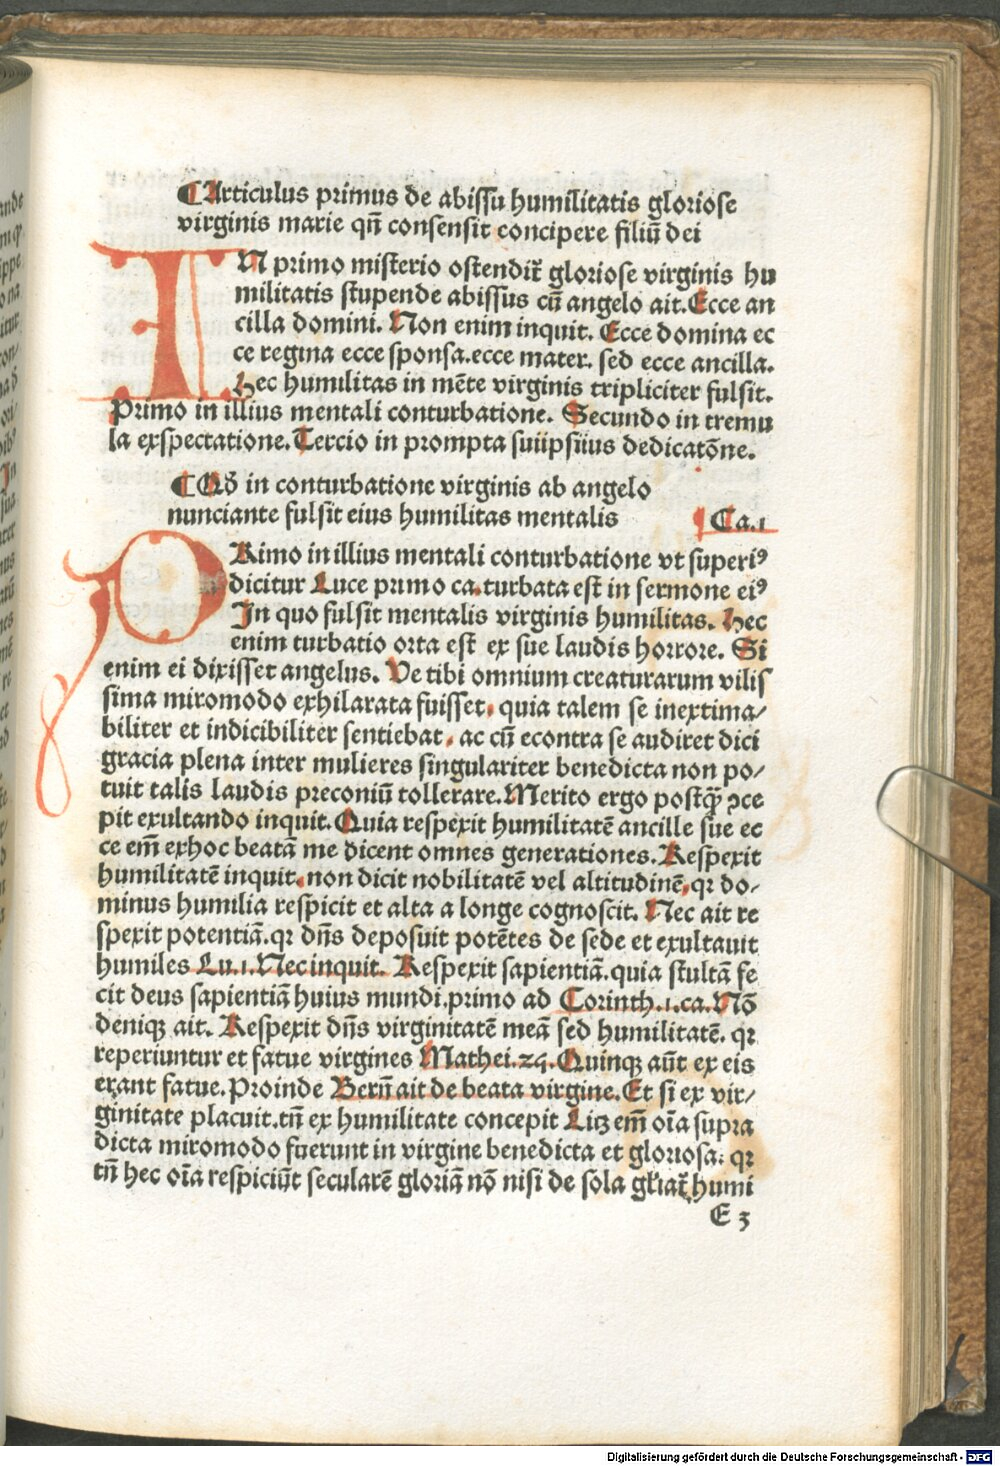 ¶Articulus primus de abissu humilitatis gloriose
virginis marie qñ consensit concipere filiū dei
IN primo misterio ostendit̄ gloriose virginis hu
militatis stupende abissus cū angelo ait. Ecce an
cilla domini. Non enim inquit. Ecce domina ec
ce regina ecce sponsa. ecce mater. sed ecce ancilla.
Hec humilitas in mēte virginis tripliciter fulsit.
Primo in illius mentali conturbatione. Secundo in tremu
la exspectatione. Tercio in prompta suiipsiius dedicatōne.
¶Qđ in conturbatione virginis ab angelo
nunciante fulsit eius humilitas mentalis Ca.1
PRimo in illius mentali conturbatione vt superiꝰ
dicitur Luce primo ca. turbata est in sermone eiꝰ
In quo fulsit mentalis virginis humilitas. Hec
enim turbatio orta est ex sue laudis horrore. Si
enim ei dixisset angelus. Ve tibi omnium creaturarum vilis
sima miromodo exhilarata fuisset. quia talem se inextima/
biliter et indicibiliter sentiebat. ac cū econtra se audiret dici
gracia plena inter mulieres singulariter benedicta non po/
tuit talis laudis preconiū tollerare. Merito ergo postꝙ̄ ↄce
pit exultando inquit. Quia respexit humilitatē ancille sue ec
ce em̄ exhoc beatā me dicent omnes generationes. Respexit
humilitatē inquit. non dicit nobilitatē vel altitudinē. qꝛ do/
minus humilia respicit et alta a longe cognoscit. Nec ait re
spexit potentiā. qꝛ dn̄s deposuit potētes de sede et exultauit
humiles Lu.1. Nec inquit. Respexit sapientiā. quia stultā fe
cit deus sapientiā huius mundi. primo ad Corinth.1.ca. Nō
deniqꝫ ait. Respexit dn̄s virginitatē meā sed humilitatē. qꝛ
reperiuntur et fatue virgines Mathei.25. Quinqꝫ aūt ex eis
erant fatue. Proinde Bern̄ ait de beata virgine. Et si ex vir/
ginitate placuit. tn̄ ex humilitate concepit Licꝫ em̄ oīa supra
dicta miromodo fuerunt in virgine benedicta et gloriosa. qꝛ
tn̄ hec oīa respiciūt secularē gloriā nō nisi de sola gl̄iat̄ humi
E 3
Digitalisierung gefördert durch die Deutsche Forschungsgemeinschaft - DFG